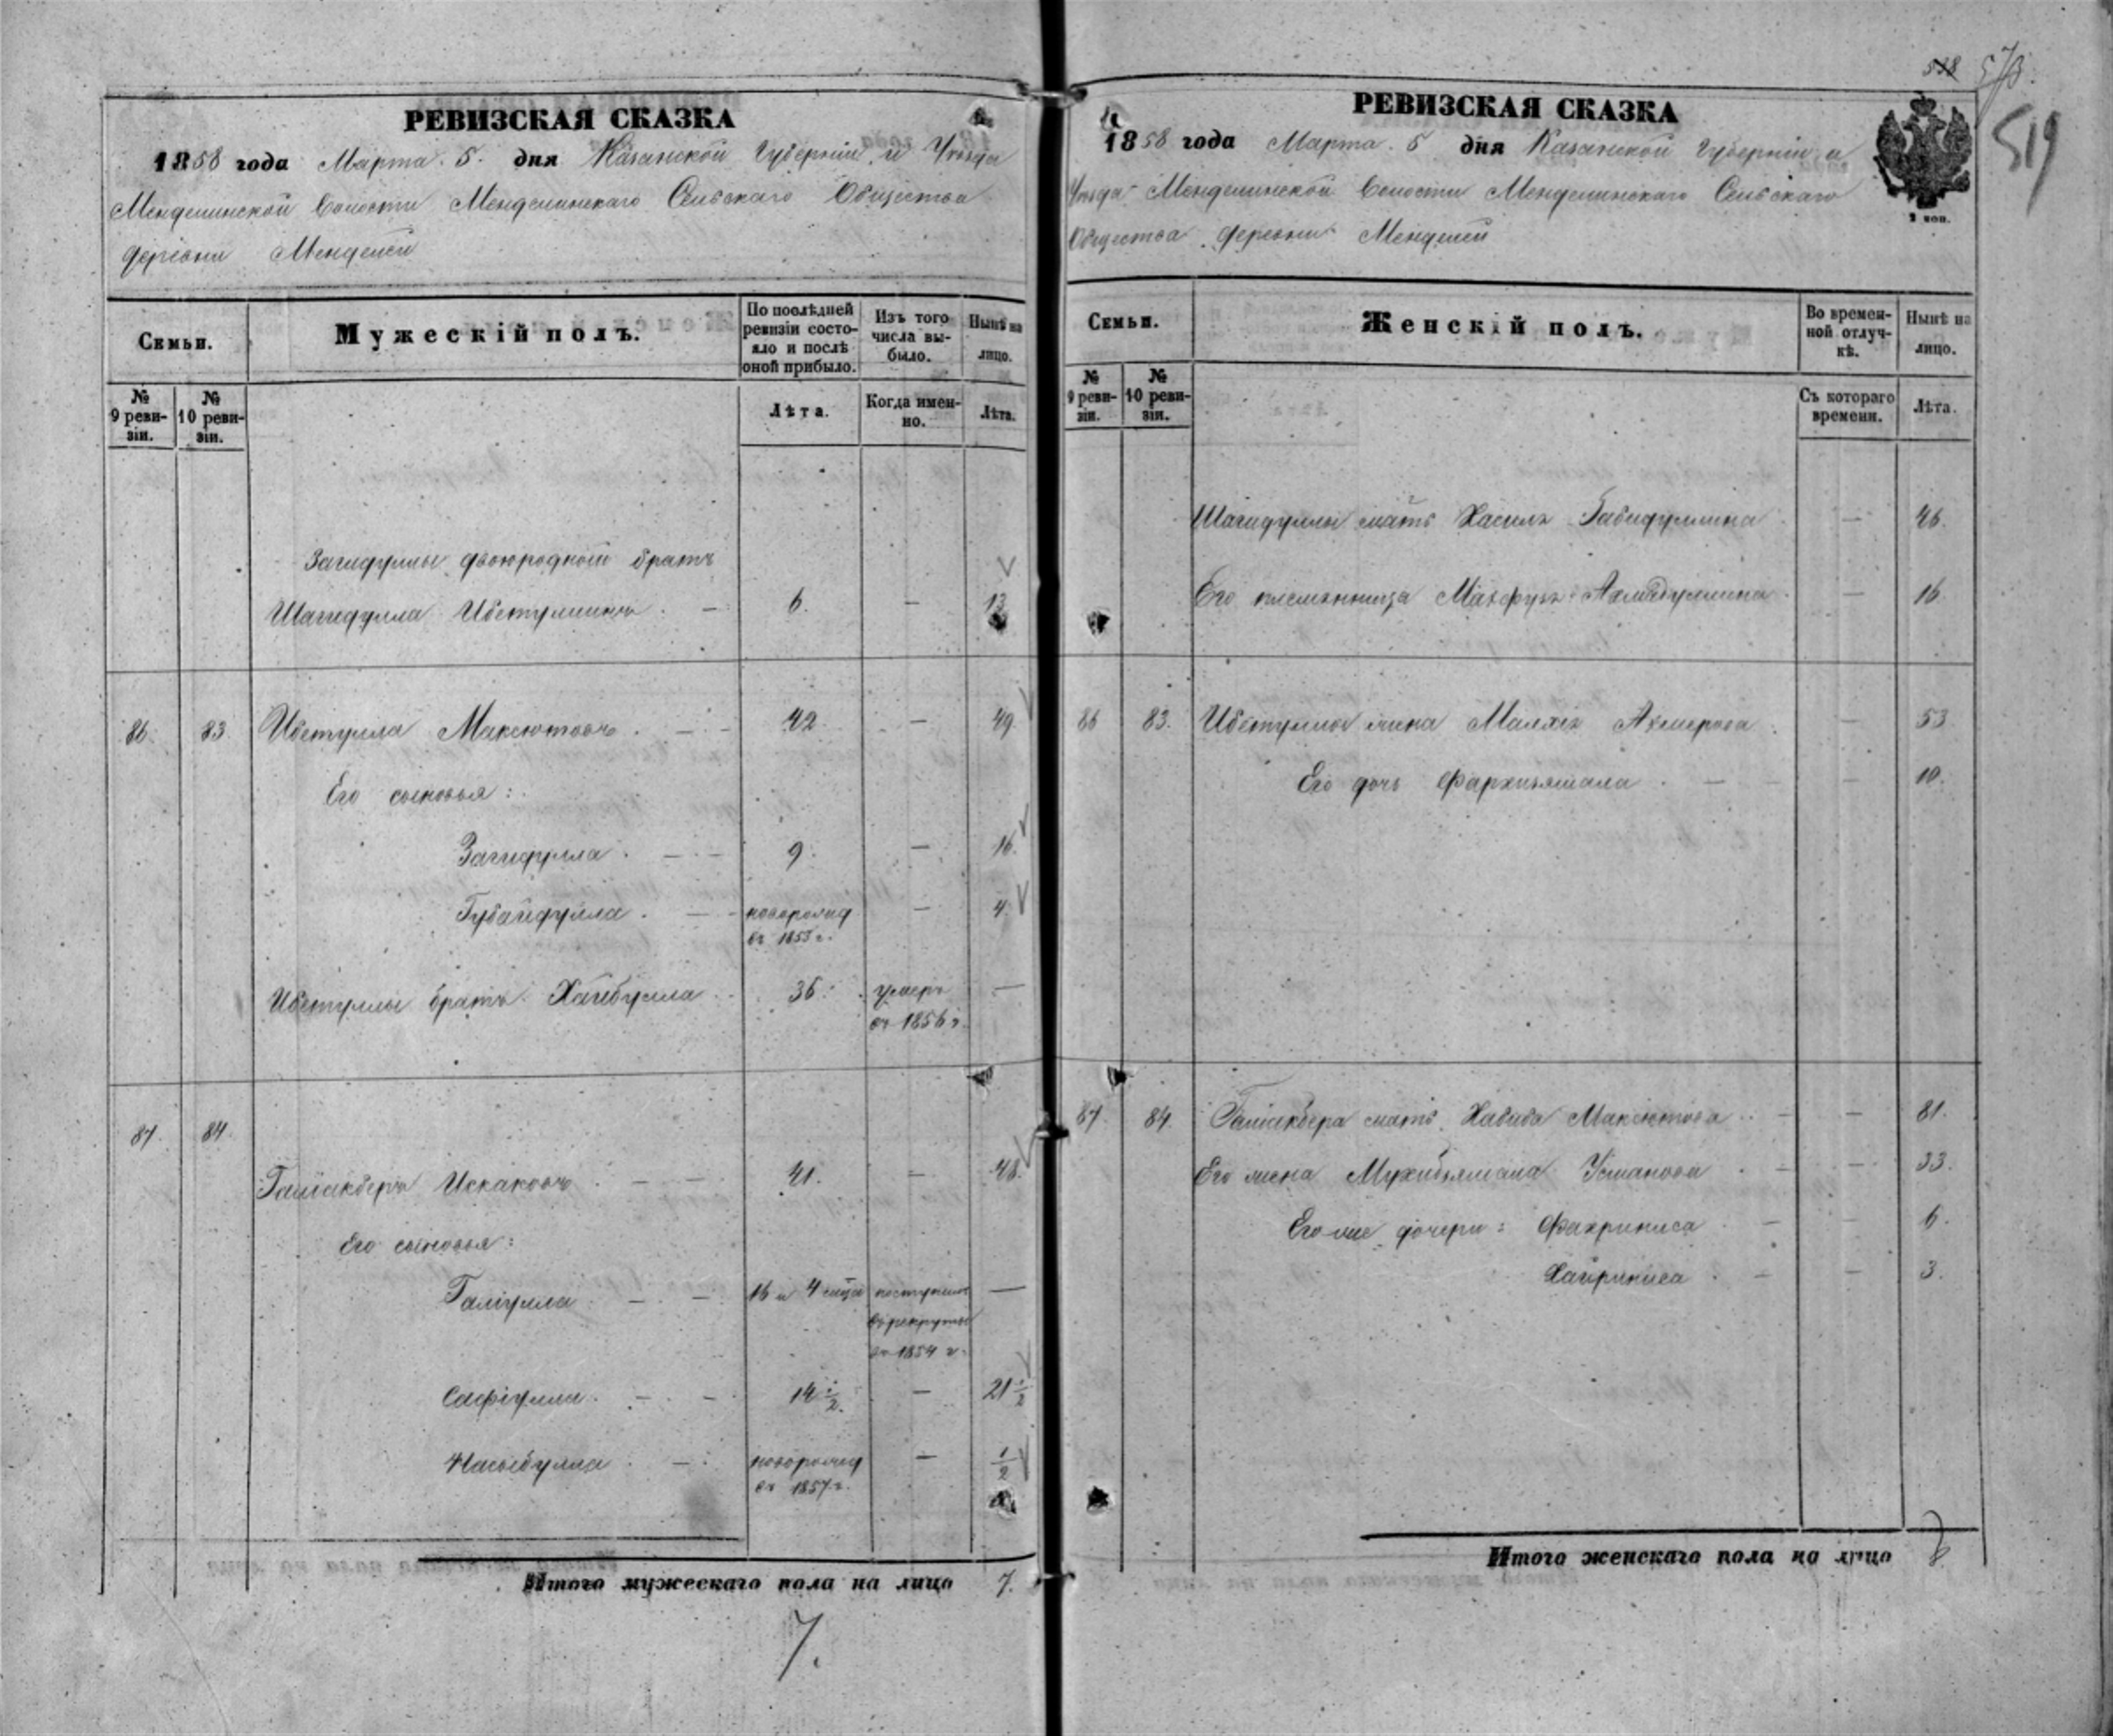 РЕВИЗСКАЯ СКАЗКА
1858 года Марта 5. дня Казанской Губерніи и Уѣзда
Менделинской Волости Менделинскаго Сельскаго Общества
деревни Менделей
Семьи.
Мужескій полъ.
По послѣдней ревизіи состояло и послѣ оной прибыло.
Изъ того числа выбыло.
Нынѣ на лицо.
№ 9 ревизіи.
№ 10 ревизіи.
Лѣта.
Когда именно.
Лѣта.
Загидуллы двоюродной братъ
Шагидулла Ибетуллинъ . — 6. — 13
86. 83. Ибетулла Максютовъ . — 42. — 49.
Его сыновья:
Загидулла . — 9. — 16.
Губайдулла . — новорожд — 4.
въ 1853 г.
Ибетуллы братъ Хайбулла . 36. умеръ —
въ 1856 г.
87. 84.
Галіакберъ Искаковъ . — 41. — 48.
Его сыновья:
Галіулла . — 16 и 4 мѣца поступилъ —
въ рекруты
въ 1854 г.
Сафіулла . — 14 1/2. — 21 1/2
Насыбулла . — новорожд — 1/2
въ 1857 г.
Итого мужескаго пола на лицо 7.
7.
518
519
РЕВИЗСКАЯ СКАЗКА
1858 года Марта 5 дня Казанской Губерніи и
Уѣзда Менделинской Волости Менделинскаго Сельскаго
Общества деревни Менделей
Семьи.
Женскій полъ.
Во временной отлучкѣ.
Нынѣ на лицо.
№ 9 ревизіи.
№ 10 ревизіи.
Съ котораго времени.
Лѣта.
Шагидуллы мать Габидуллина — 46.
Его племянница Ахмадуллина — 16
86 83. Ибетуллы жена Ахмерова — 53
Его дочь Фархиямала . — — 10.
87. 84. Галіакбера мать Хабиба Максютова . — — 81.
Его жена Мухибямала Усманова . — — 33.
Его же дочери: Фахриниса — — 6.
Хайриниса . — — 3.
Итого женскаго пола на лицо 8